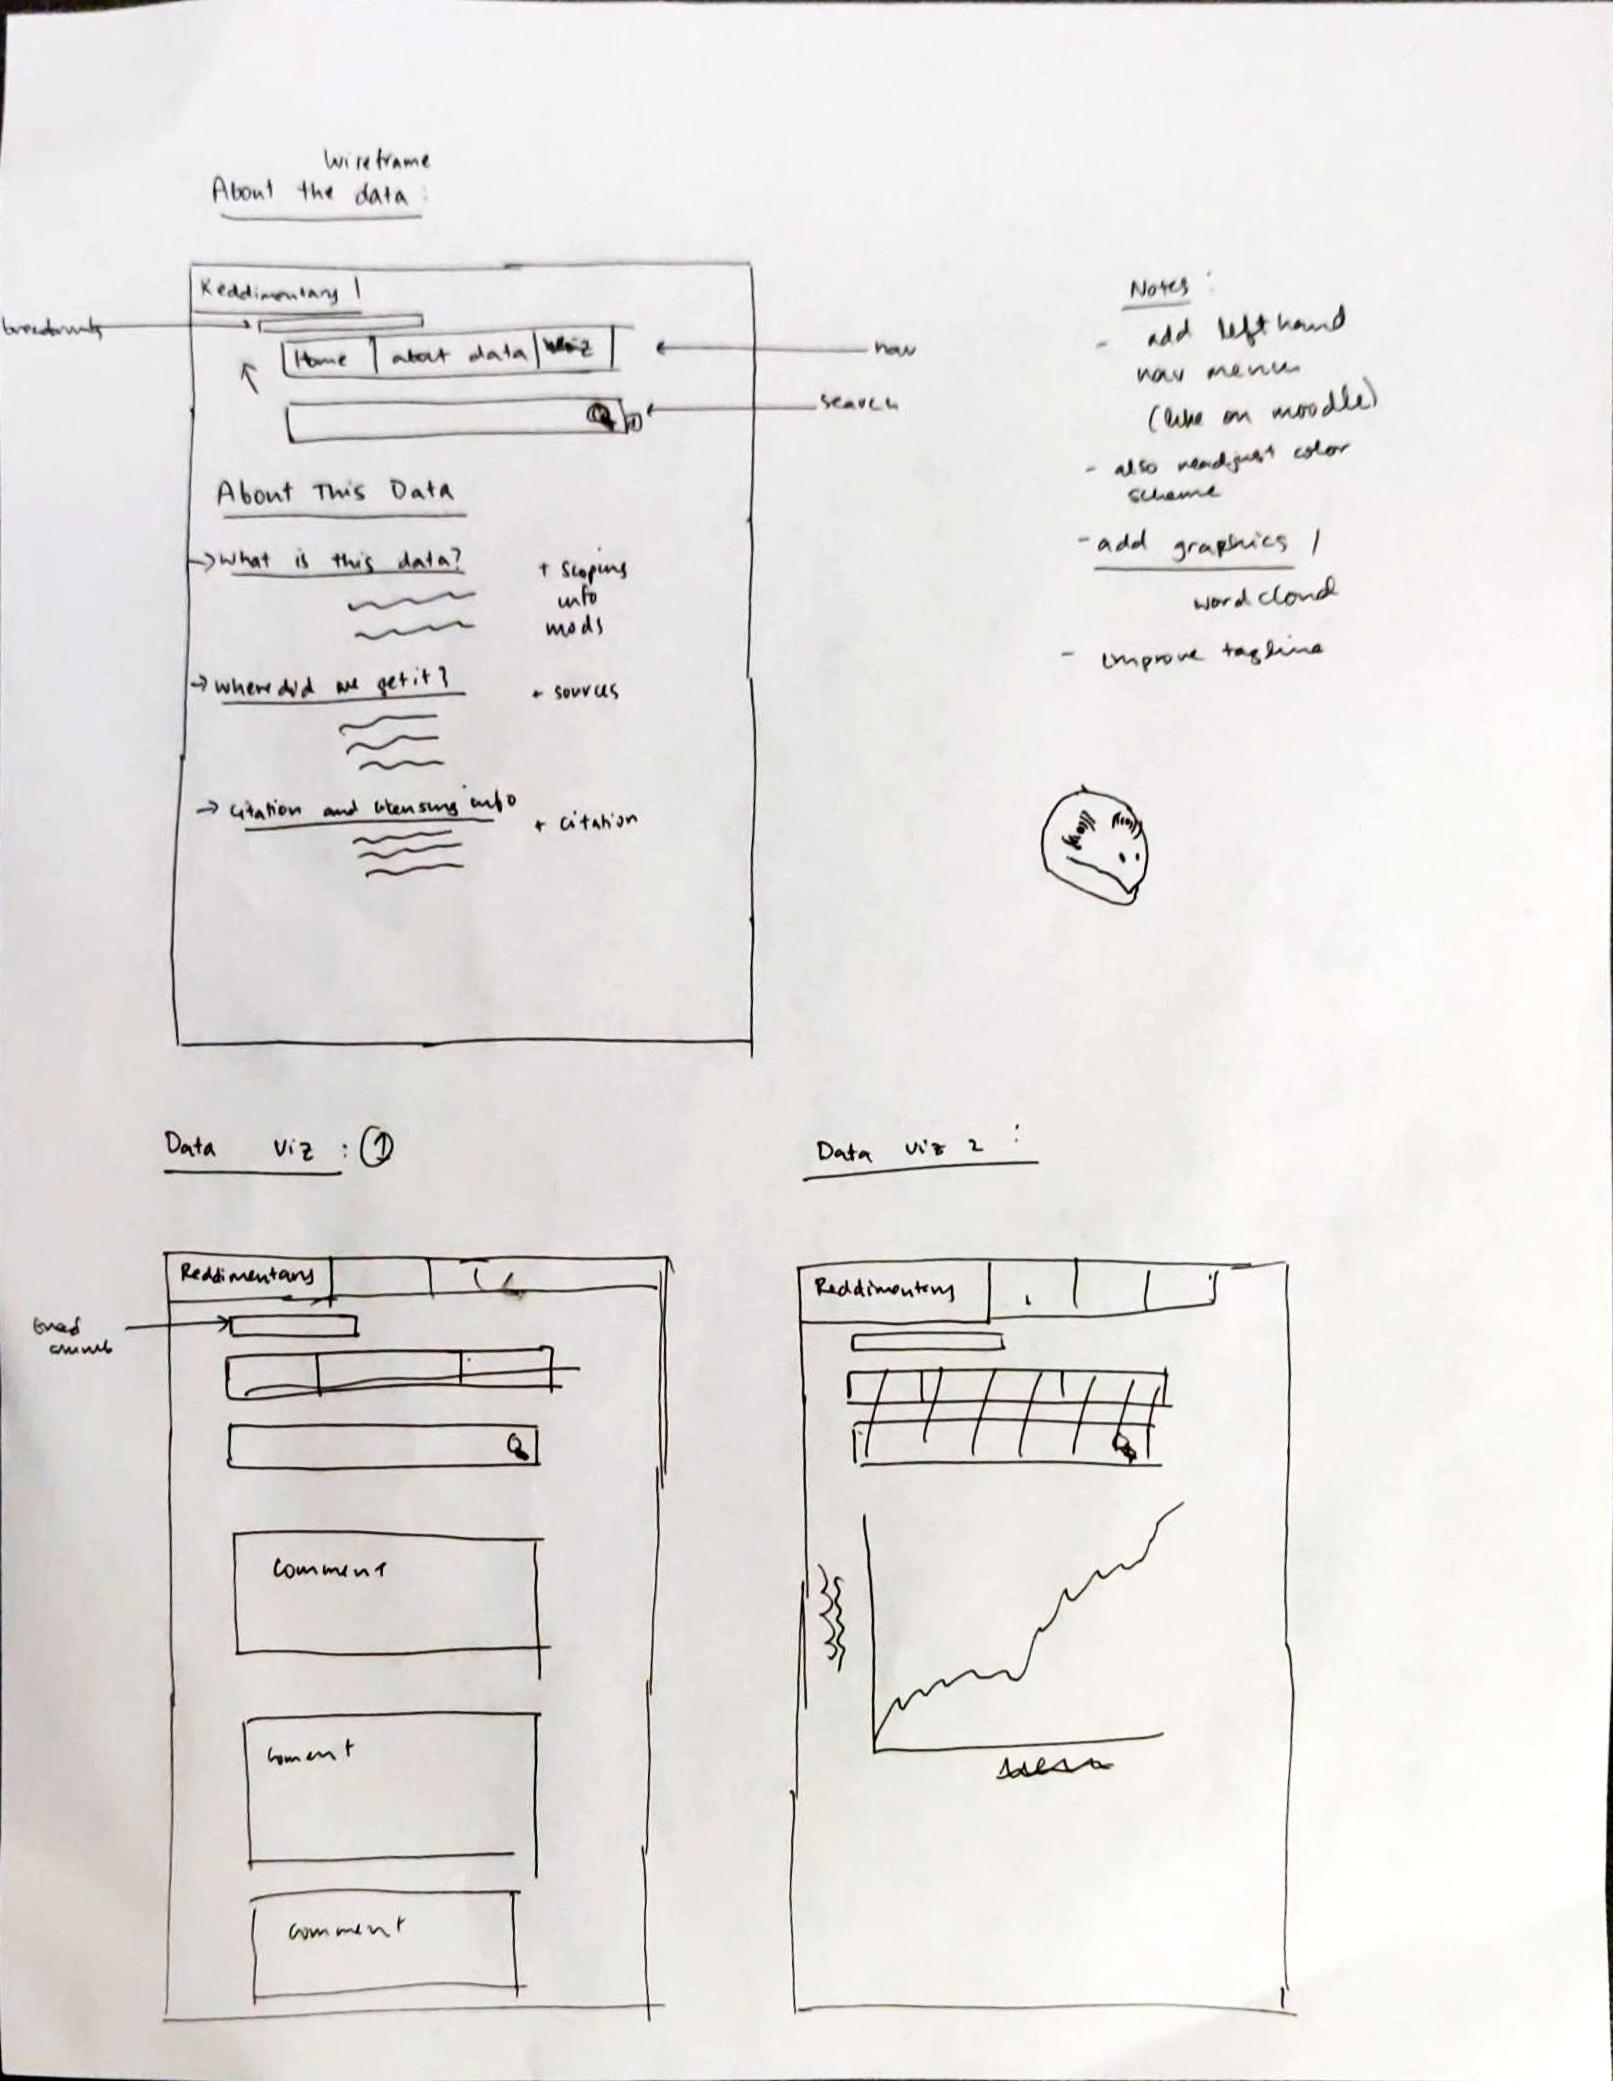 Wireframe
About the data :
Reddimentary
breadcrumbs
Home
about data
viz
nav
search
About This Data
→ What is this data?
+ scoping
info
mods
→ where did we get it?
+ sources
→ citation and licensing info
+ citation
Notes :
- add left hand
nav menu
(like on moodle)
- also readjust color
scheme
- add graphics /
wordcloud
- improve tagline
Data viz : 1
Reddimentary
bread
crumb
comment
coment
comment
Data viz 2 :
Reddimentary